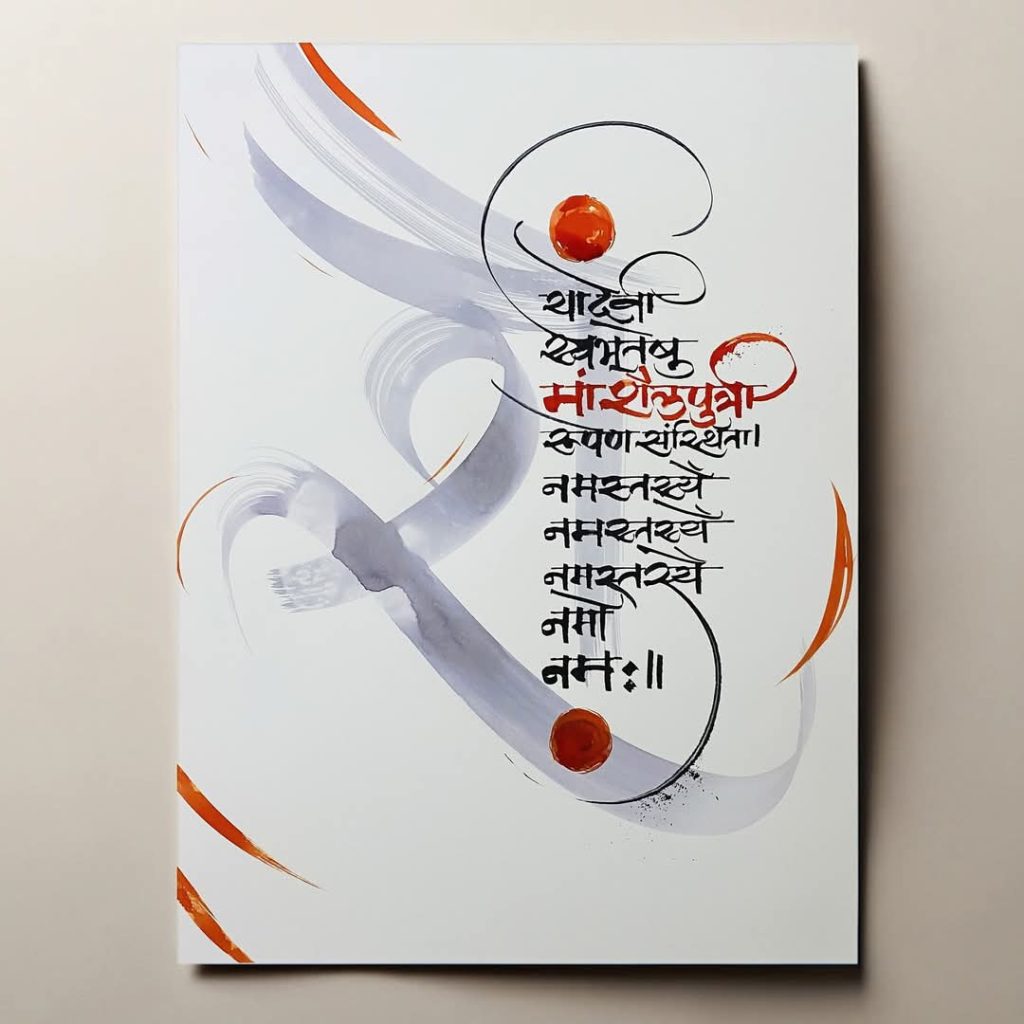 या देवी
सर्वभूतेषु
मां शैलपुत्री
रूपेण संस्थिता।
नमस्तस्यै
नमस्तस्यै
नमस्तस्यै
नमो
नमः॥